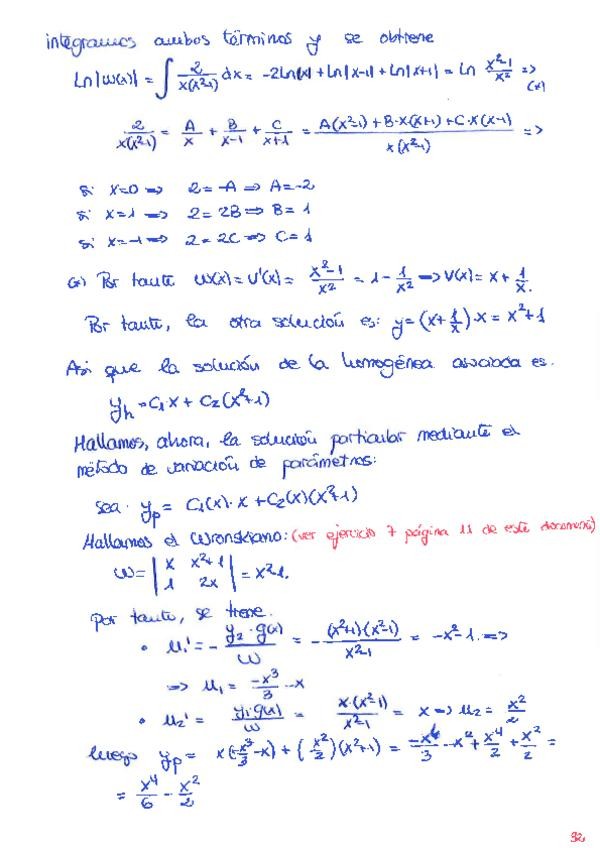 integramos ambos términos y se obtiene
Ln|w(x)| = ∫ 2/(x(x²-1)) dx = -2Ln|x| + Ln|x-1| + Ln|x+1| = Ln (x²-1)/x² => (*)
2/(x(x²-1)) = A/x + B/(x-1) + C/(x+1) = (A(x²-1) + B·x(x+1) + C·x(x-1))/(x(x²-1)) =>
si x=0 => 2=-A => A=-2
si x=1 => 2=2B => B=1
si x=-1 => 2=2C => C=1
(*) Por tanto w(x) = v'(x) = (x²-1)/x² = 1 - 1/x² => v(x) = x + 1/x.
Por tanto, la otra solución es: y=(x+1/x)·x = x²+1
Así que la solución de la homogénea asociada es.
y_h = C₁x + C₂(x²+1)
Hallamos, ahora, la solución particular mediante el
método de variación de parámetros:
sea. y_p = C₁(x)·x + C₂(x)(x²+1)
Hallamos el Wronskiano: (ver ejercicio 7 página 11 de este documento)
W = |x x²+1; 1 2x| = x²-1.
Por tanto, se tiene.
• u₁' = - (y₂·g(x))/W = - ((x²+1)(x²-1))/(x²-1) = -x²-1. =>
=> u₁ = -x³/3 - x
• u₂' = (y₁·g(x))/W = (x·(x²-1))/(x²-1) = x => u₂ = x²/2
luego y_p = x(-x³/3 - x) + (x²/2)(x²+1) = -x⁴/3 - x² + x⁴/2 + x²/2 =
= x⁴/6 - x²/2
92